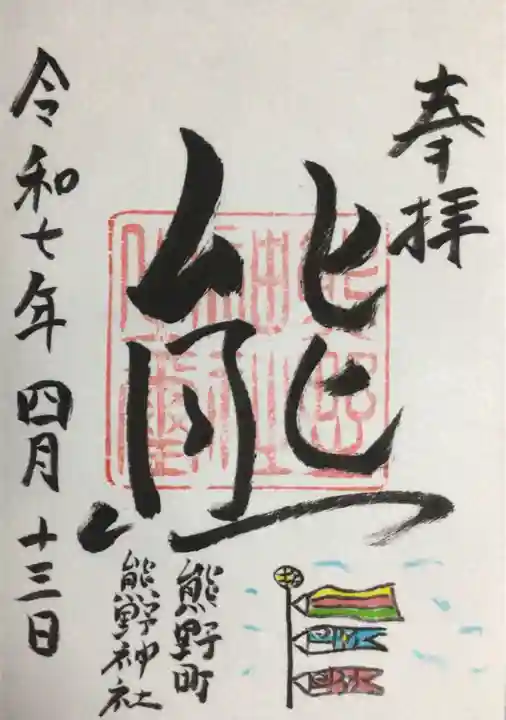 奉拝
熊
熊野
神社
熊野町
熊野神社
令和七年四月十三日